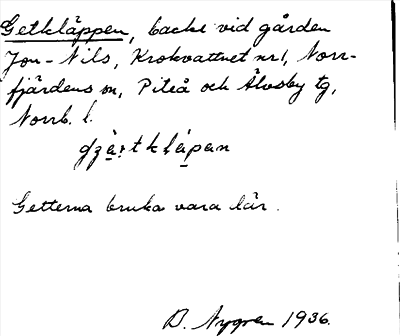 Getkläppen, backe vid gården
Jon-Nils, Krokvattnet nr 1, Norr-
fjärdens sn, Piteå och Älvsby tg,
Norrb. l.
Getterna bruka vara där.
D. Nygren 1936.